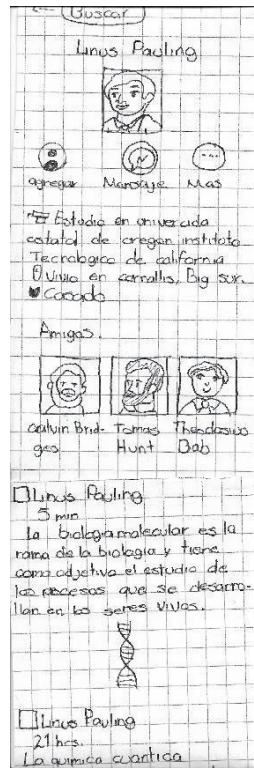 Buscar
Linus Pauling
agregar Mensaje Mas
Estudio en univercida
estatal de oregon instituto
Tecnologico de california
Vivio en corrallis, Big sur.
Casado
Amigos.
calvin Brid- Tomas Theodosius
ges Hunt Dob
Linus Pauling
5 min
la biologia molecular es la
rama de la biologia y tiene
como odjetivo el estudio de
los procesos que se desarro-
llan en los seres vivos.
Linus Pauling
21 hrs.
La quimica cuantica